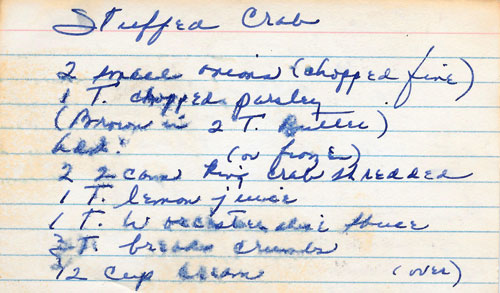 Stuffed Crab
2 small onions (chopped fine)
1 T. chopped parsley
(Brown in 2 T. Butter)
Add:
(or frozen)
2 cans King crab shredded
1 T. lemon juice
1 T. Worcestershire Sauce
T. bread crumbs
1/2 cup cream (over)